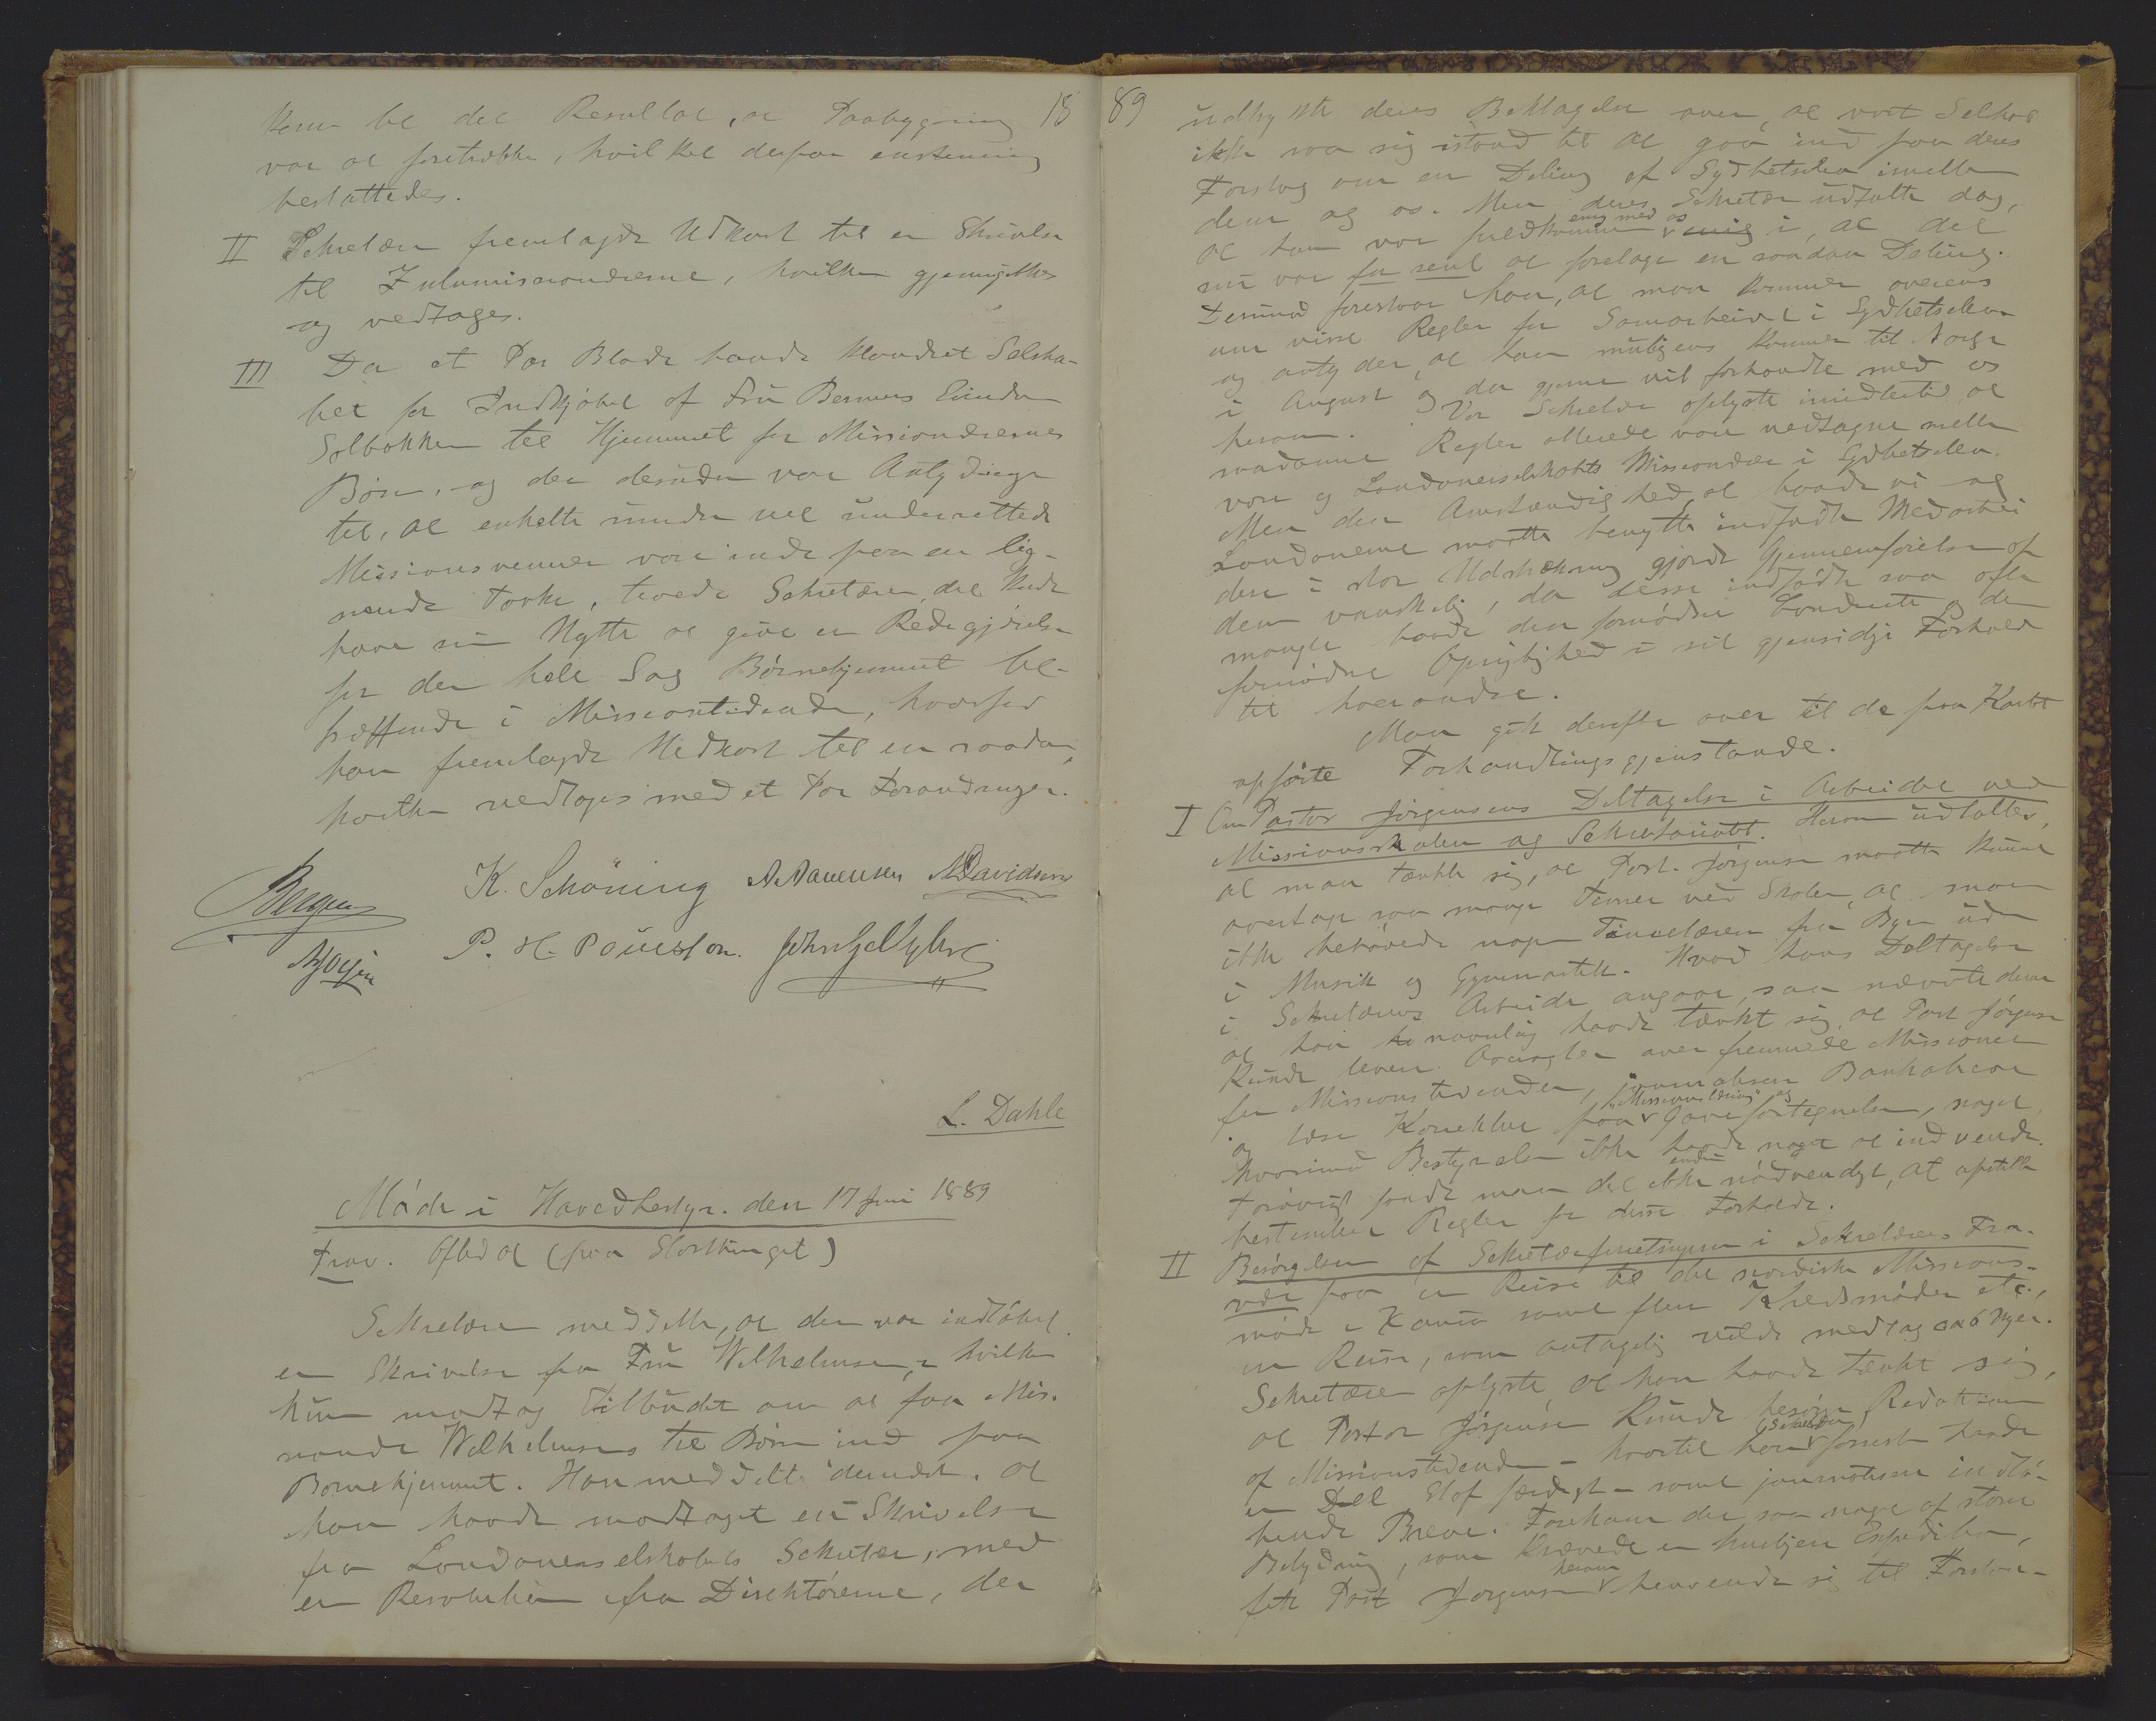 18
kom til det Resultat, at Paabygning
var at foretrække, hvilket derpaa enstemmig
besluttedes.
II Sekretæren fremlagde Udkast til en Skrivelse
til Zulumissionærerne, hvilken gjennemgikkes
og vedtages.
III Da et Par Blade havde klandret Selska-
bet for Indkjøbet af Fru Berners Eiendom
Solbakken til Hjemmet for Missionærernes
Børn, og der desuden var Antydninger
til, at enkelte mindre vel underrettede
Missionsvenner vare inde paa en lig-
nende Tanke, troede Sekretæren, det kunde
have sin Nytte at give en Redegjørelse
for den hele Sag Børnehjemmet be-
træffende i Missionstidende, hvorfor
han fremlagde Udkast til en saadan,
hvilken vedtoges med et Par Forandringer.
K. Schöning A Aanensen Davidsen
P. H. Poulsson.
L. Dahle
Møde i Hovedbestyr. den 17 Juni 1889
Frav. Oftedal (paa Storthinget)
Sekretæren meddelte, at der var indløbet
en Skrivelse fra Fru Wilhelmsen, i hvilken
hun modtog Tilbudet om at faa Mis.
Wilhelmsens til Børn ind paa
Børnehjemmet. Han meddelte desuden, at
han havde modtaget en Skrivelse
fra Londonerselskabets Sekretær, med
en Resolution fra Direktørerne, der
89
udtrykte deres Beklagelse over, at vort Selskab
ikke saa sig istand til at gaa ind paa deres
Forslag om en Deling af Sydbetsileo imellem
dem og os. Men deres Sekretær udtalte dog,
at han var fuldkommen enig med os i, at det
nu var for sent at foretage en saadan Deling.
Derimod foreslaar han, at man kommer overens
om visse Regler for Samarbeidet i Sydbetsileo
og antyder, at han muligens kommer til Norge
i August og da gjerne vil forhandle med os
herom. Vor Sekretær oplyste imidlertid, at
saadanne Regler allerede vare vedtagne mellem
vore og Londonerselskabets Missionærer i Sydbetsileo.
Men den Omstændighed, at baade vi og
Londonerne maatte benytte indfødte Medarbei
dere i stor Udstrækning gjorde Gjennemførelsen af
dem vanskelig, da disse indfødte saa ofte
mangle baade den fornødne Conduite og den
fornødne Oprigtighed i sit gjensidige Forhold
til hverandre.
Man gik derefter over til de paa Kartet
opførte Forhandlingsgjenstande.
I Om Pastor Jørgensens Deltagelse i Arbeidet ved
Missionsskolen og Sekretariatet. Herom udtaltes,
at man tænkte sig, at Past. Jørgensen maatte kunne
overtage saa mange Timer ved Skolen, at man
ikke behøvede nogen Timelærer fra Byen uden
i Musik og Gymnastik. Hvad hans Deltagelse
i Sekretærens Arbeide angaar, saa nævnte denne
at han navnlig havde tænkt sig, at Past Jørgensen
kunde levere Oversigter over fremmede Missioner
for Missionstidenden, journalisere Bankobreve
og læse Korrektur paa "Missionslæsning" og Gavefortegnelsen, noget
hvorimod Bestyrelsen ikke havde noget at indvende.
Forøvrigt fandt man det ikke endnu nødvendigt, at opstille
bestemte Regler for disse Forholde.
II Besørgelsen af Sekretærforretningerne i Sekretærens Fra-
vær paa en Reise til det nordiske Missions-
møde i Kania samt flere Kredsmøder etc.,
en Reise, som antagelig vilde medtage ca 6 Uger.
Sekretæren oplyste at han havde tænkt sig,
at Pastor Jørgensen kunde besørge Redaktionen
af Missionstidende – hvortil han (Sekretæren) forresten havde
en Del Stof færdigt – samt journalisere indlø-
bende Breve. Forekom der saa noget af større
Betydning, som krævede en hurtigere Expedition,
fik Past Jørgensen herom henvende sig til Forstan-